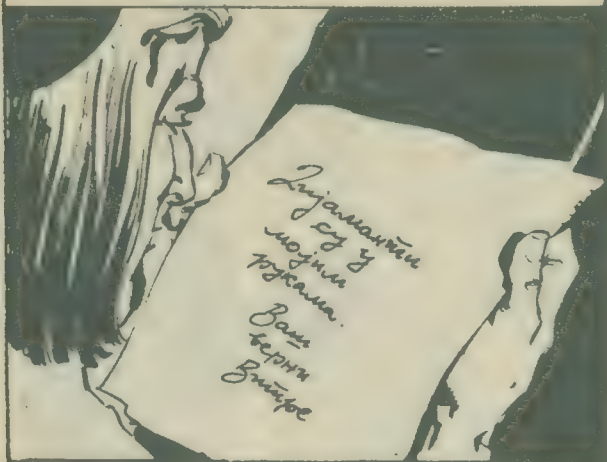 Дијаманти
су у
мојим
рукама.
Ваш
верни
Витре